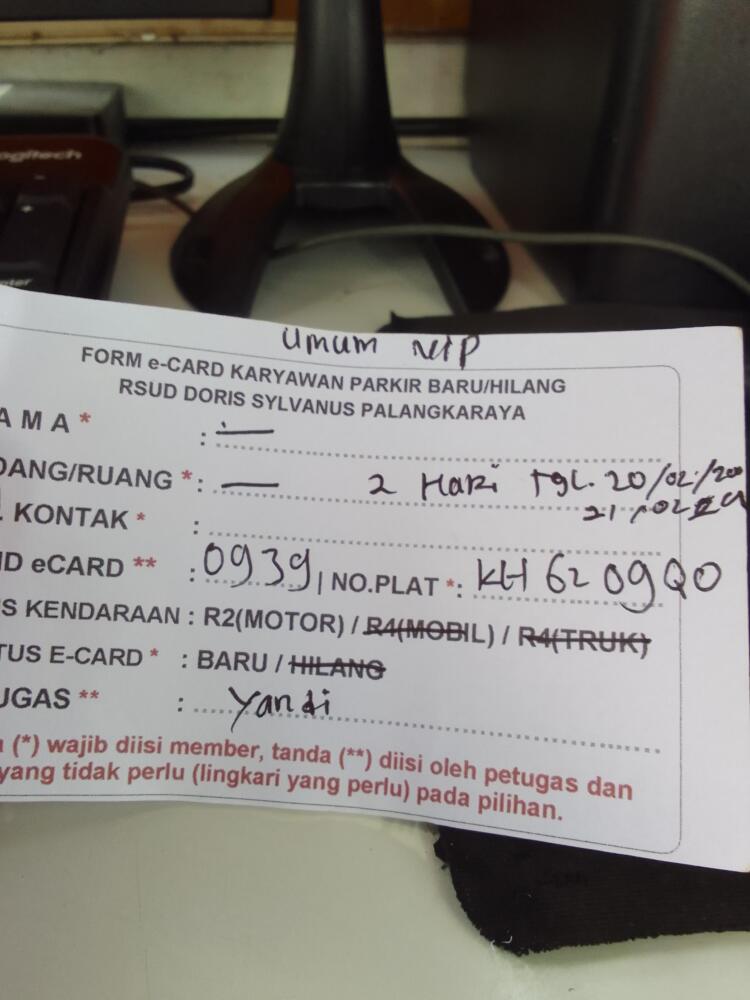 ogitech
Umum
FORM e-CARD KARYAWAN PARKIR BARU/HILANG
RSUD DORIS SYLVANUS PALANGKARAYA
AMA * : —
DANG/RUANG * : — 2 Hari Tgl. 20/02/200
21/02
KONTAK * :
ID eCARD ** : 0939 | NO.PLAT * : KH 6209QO
S KENDARAAN : R2(MOTOR) / R4(MOBIL) / R4(TRUK)
TUS E-CARD * : BARU / HILANG
UGAS ** : Yandi
(*) wajib diisi member, tanda (**) diisi oleh petugas dan
yang tidak perlu (lingkari yang perlu) pada pilihan.